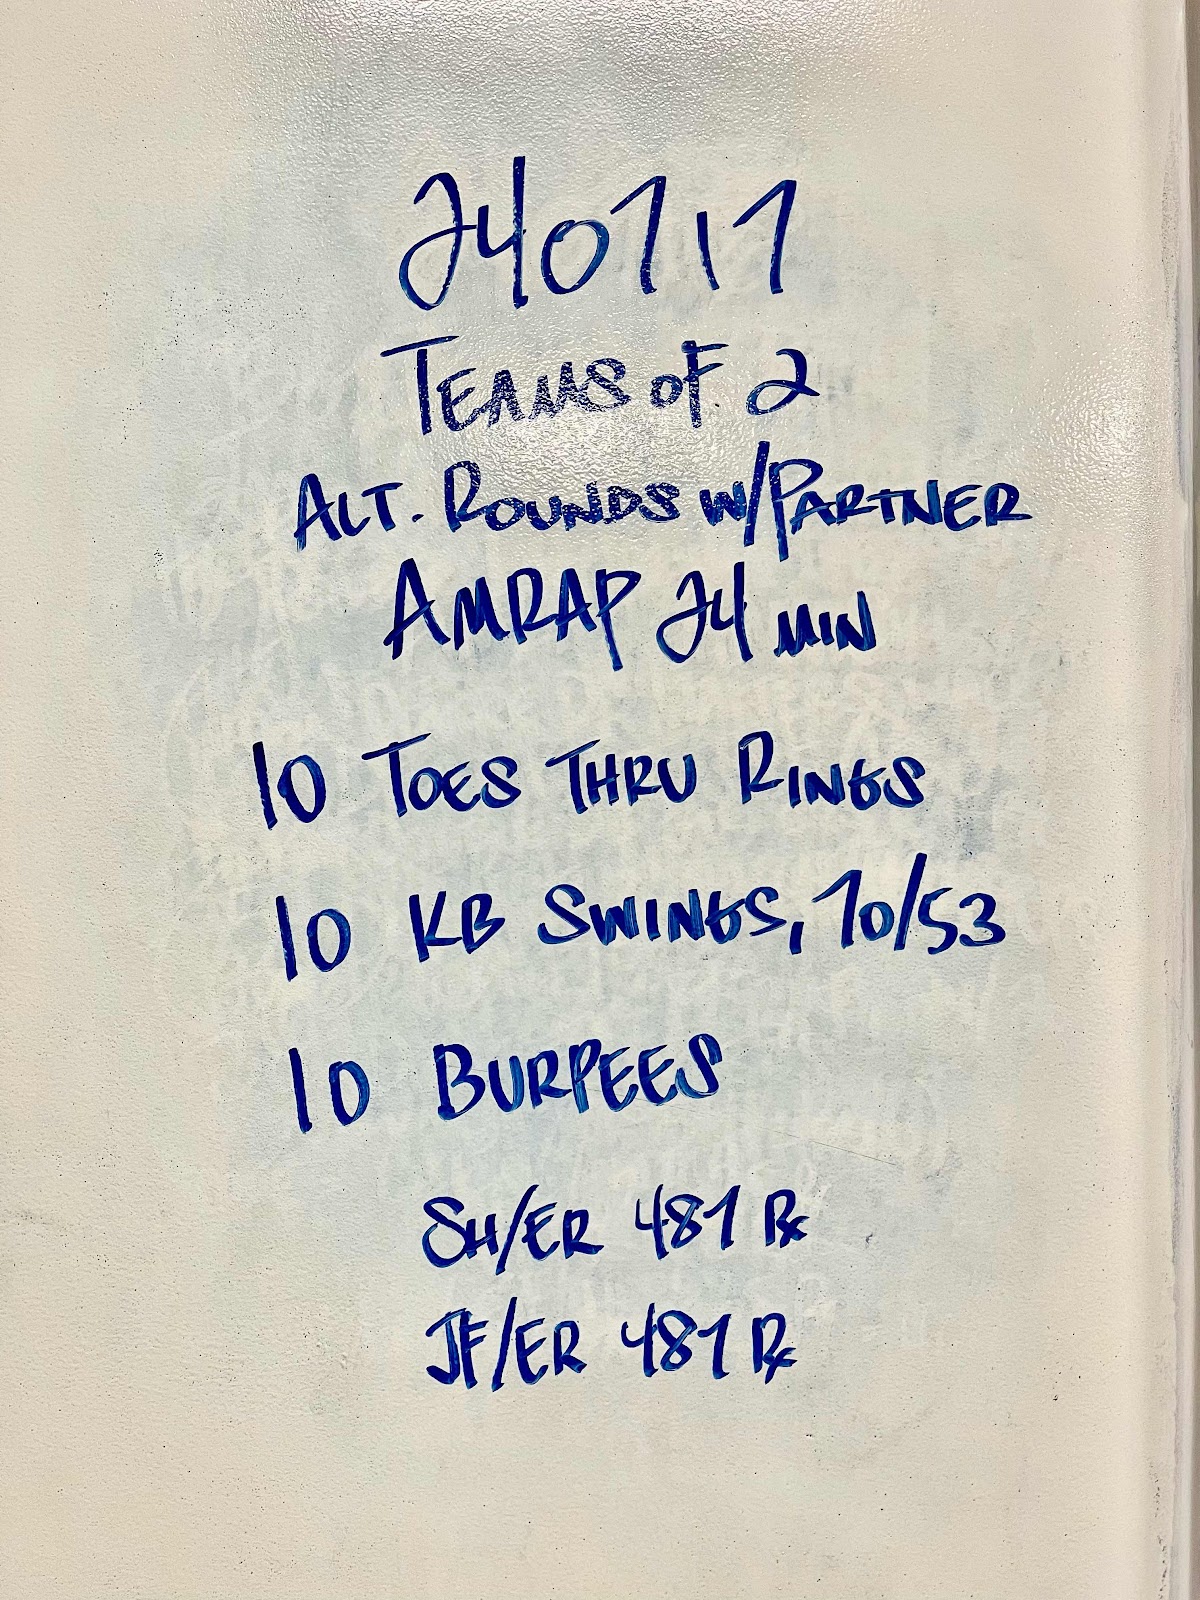 240717
TEAMS OF 2
ALT. ROUNDS W/PARTNER
AMRAP 24 MIN
10 TOES THRU RINGS
10 KB SWINGS, 70/53
10 BURPEES
SH/ER 487 Rx
JF/ER 487 Rx